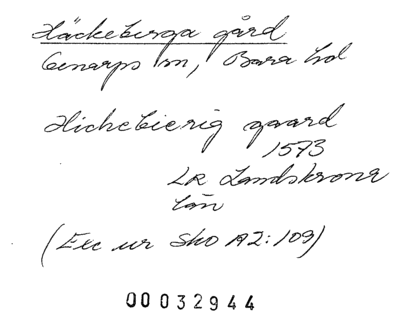 Häckeberga gård
Genarps sn, Bara hd
Hickebierig gaard
1573
LR Landskrona
län
(Exc ur Sko A2:109)
00032944